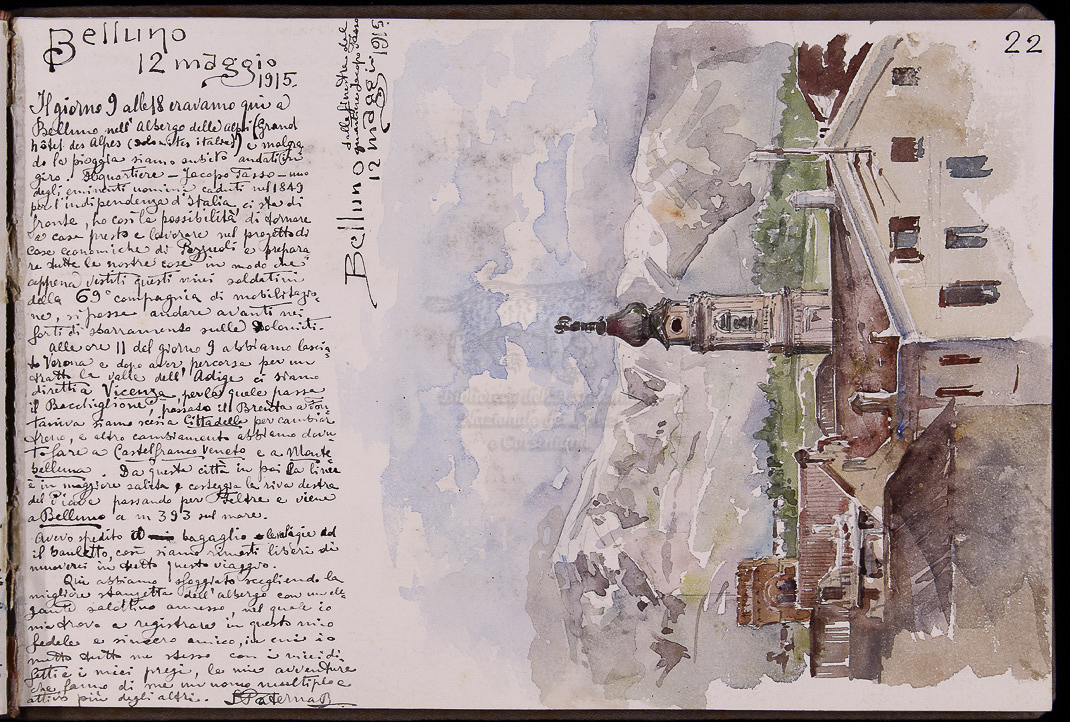 Belluno
12 maggio
1915.
Il giorno 9 alle 18 eravamo qui a
Belluno nell'Albergo delle Alpi (Grand
hôtel des Alpes (dolomites italiens) e malgra
do la pioggia siamo subito andati in
giro. Il quartiere – Jacopo Tasso – uno
degli eminenti uomini caduti nel 1849
per l'indipendenza d'Italia, ci sta di
fronte, ho con la possibilità di tornare
a casa presto e lavorare nel progetto di
case economiche di Pozzuoli e prepara
re tutte le nostre cose in modo che
appena vestiti questi miei soldatini
dalla 69ª compagnia di mobilitazio-
ne, si possa andare avanti nei
forti di sbarramento sulle Dolomiti.
alle ore 11 del giorno 9 abbiamo lascia
to Verona e dopo aver percorsa per un
tratto la valle dell'Adige ci siamo
diretti a Vicenza, per la quale passa
il Bacchiglione, passato il Brenta a Fon
taniva siamo scesi a Cittadella per cambiar
treno, e altro cambiamento abbiamo dovu
to fare a Castelfranco Veneto e a Monte
belluna. Da questa città in poi la linea
è in maggiore salita e costeggia la riva destra
del Piave passando per Feltre e viene
a Belluno a m 393 sul mare.
Avevo spedito il bagaglio e le valigie ed
il bauletto, così siamo rimasti liberi di
muoverci in tutto questo viaggio.
Qui abbiamo sfoggiato scegliendo la
migliore stanzetta dell'albergo con un ele-
gante salottino annesso, nel quale io
mi trovo a registrare in questo mio
fedele e sincero amico, in cui io
metto tutto me stesso con i miei di
fetti e i miei pregi, le mie avventure
che fanno di me un uomo multiplo e
attivo più degli altri. PaternaB.
Belluno dalla finestra del
quartiere Jacopo Tasso
12 maggio 1915
22
Biblioteca del
Nazionale
e Corsiniana